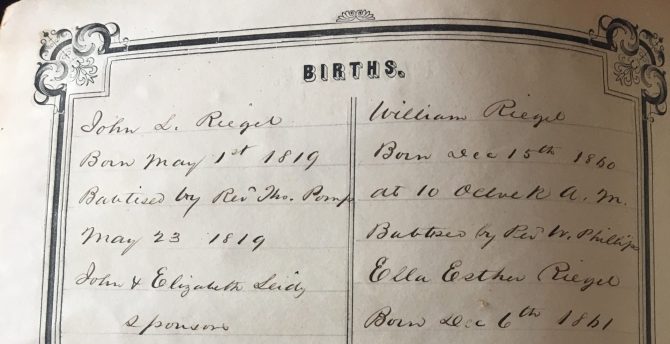 BIRTHS.
John L. Riegel
Born May 1st 1819
Babtised by Rev Tho. Pomp
May 23 1819
John & Elizabeth Leidy
sponsors
William Riegel
Born Dec 15th 1860
at 10 Oclock A. M.
Babtised by Rev W. Phillips
Ella Esther Riegel
Born Dec 6th 1861